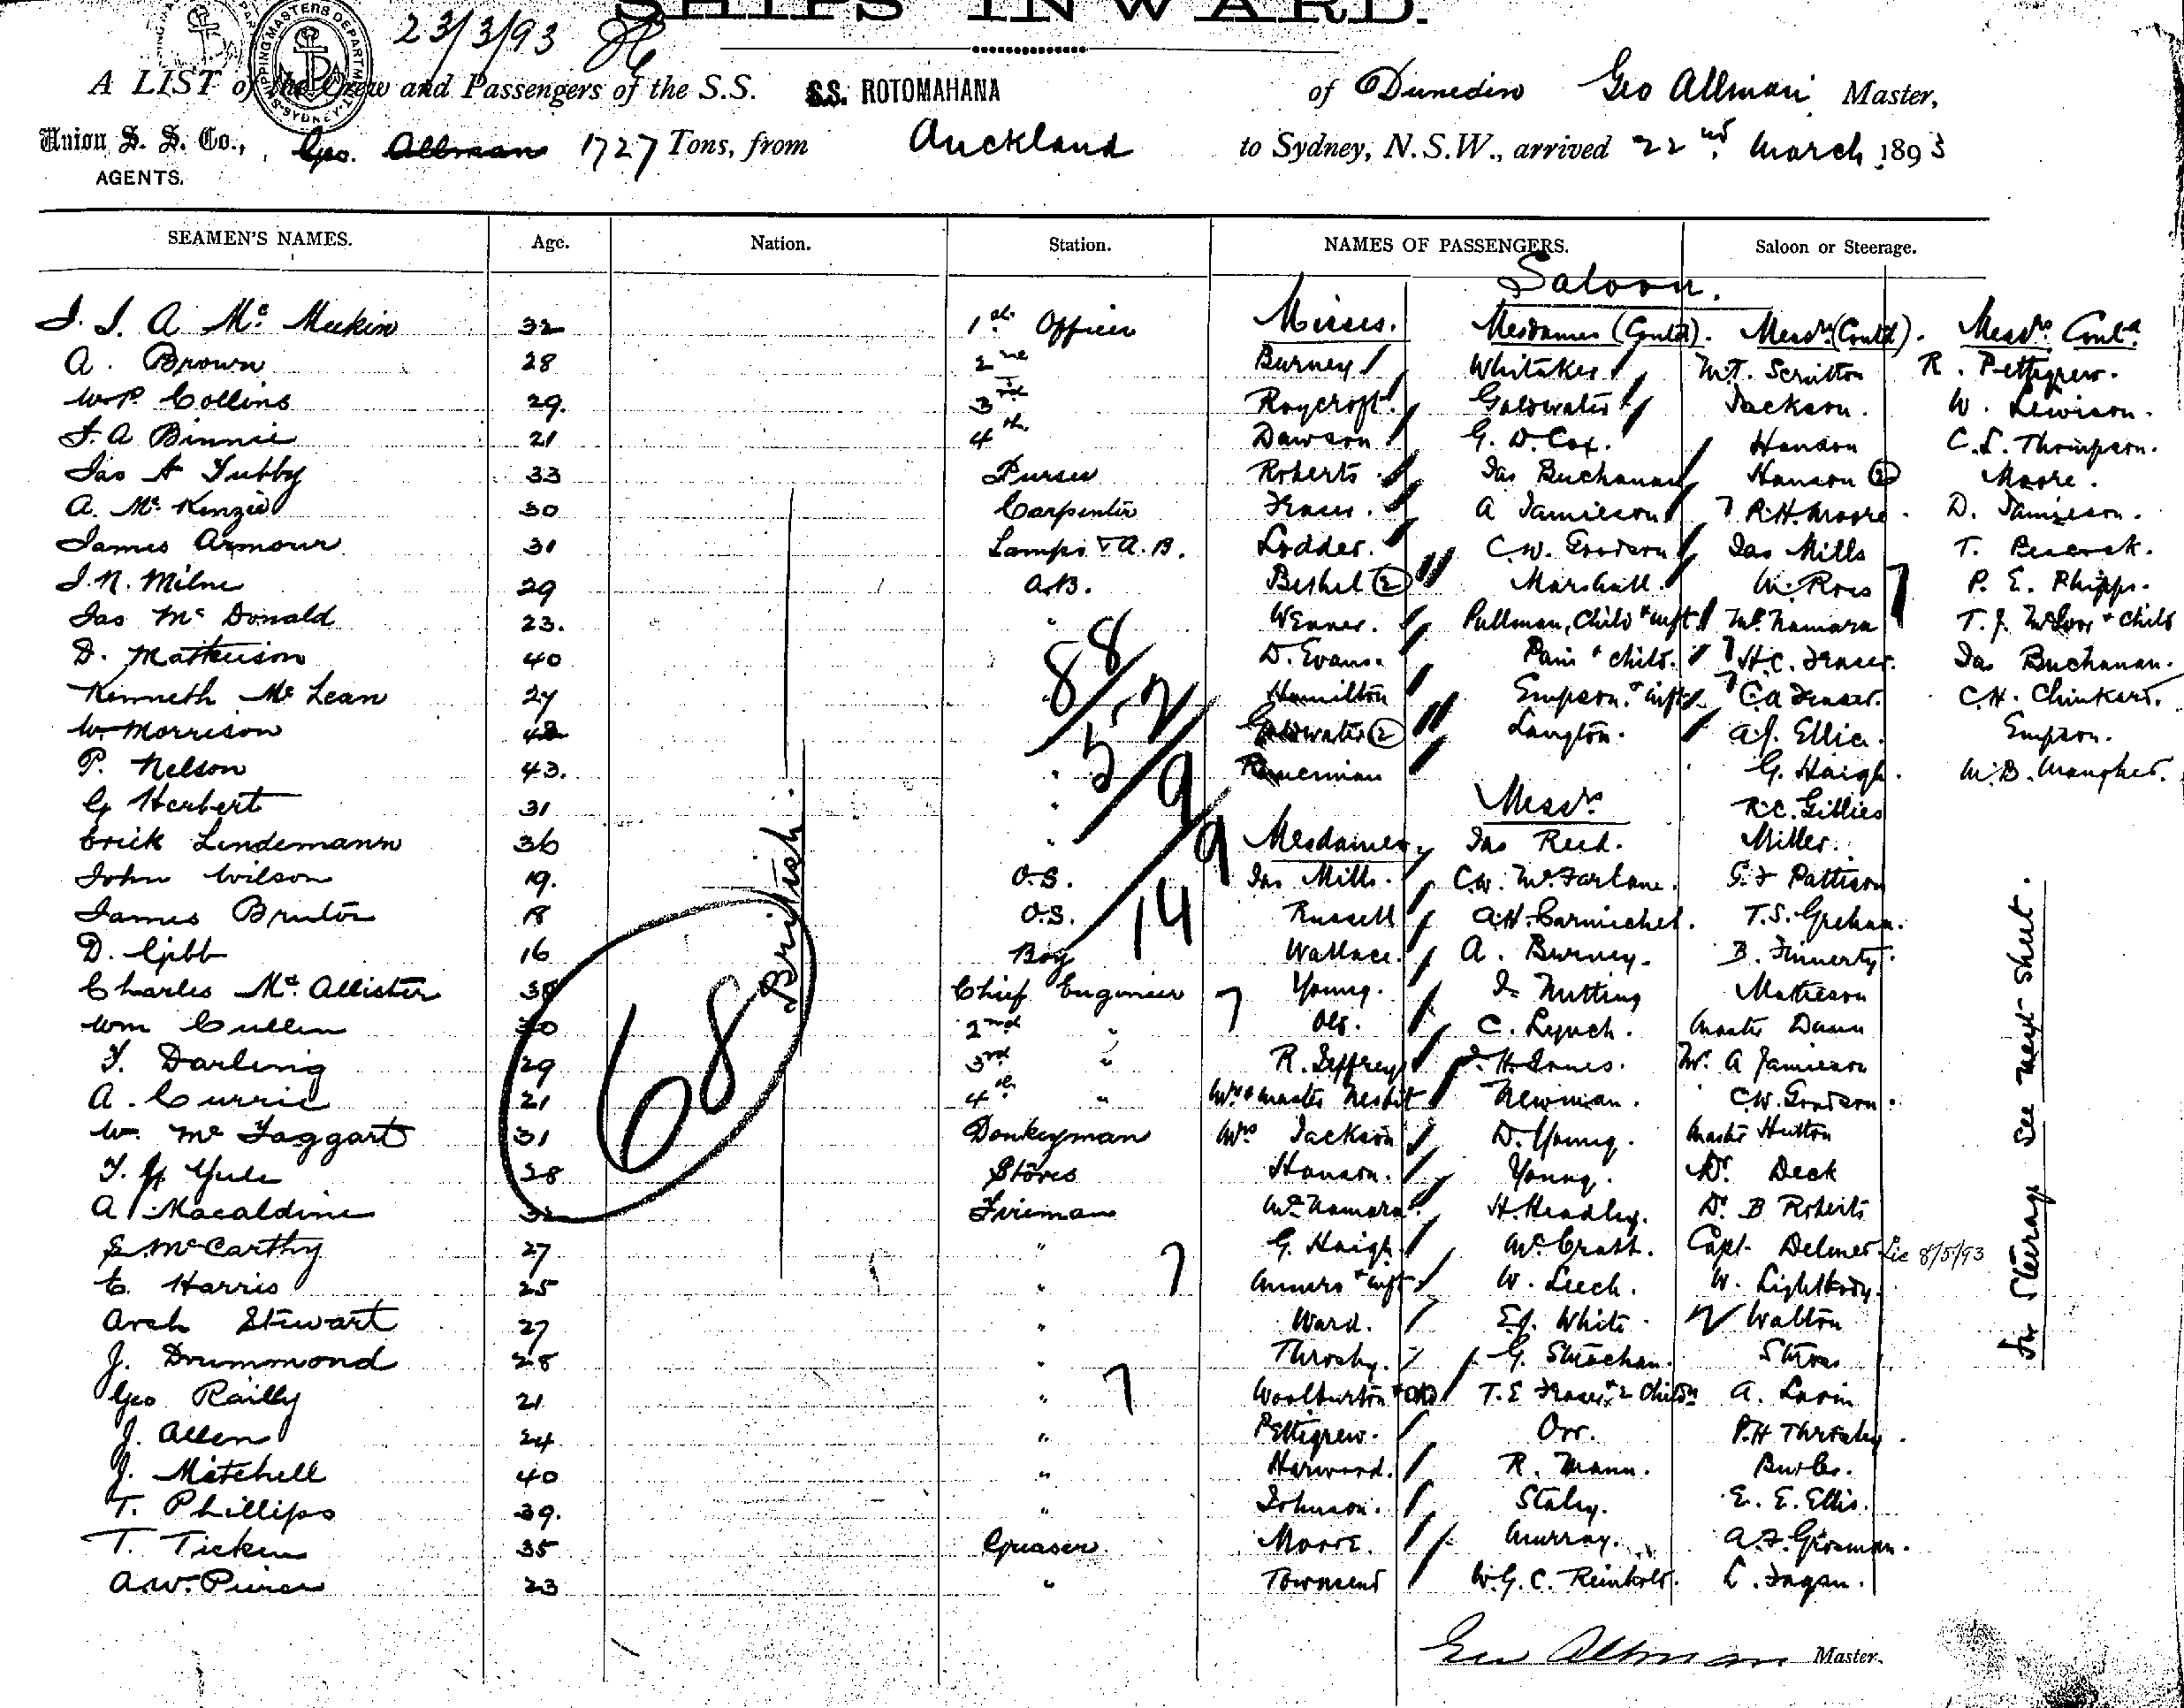 SHIPS INWARD.
23/3/93
A LIST of the Crew and Passengers of the S.S. S.S. ROTOMAHANA of Dunedin Geo Allman Master,
Union S. S. Co., Geo. Allman 1727 Tons, from Auckland to Sydney, N.S.W., arrived 22nd March 1893
AGENTS.
SEAMEN'S NAMES. Age. Nation. Station. NAMES OF PASSENGERS. Saloon or Steerage.
Saloon.
J. J. A Mc Meekin 32 1st Officer Misses. Mesdames (Contd). Messrs (Contd). Messrs Contd.
A. Brown 28 2nd Burney Whitaker M.T. Scrutton R. Pettigrew.
W.P. Collins 29. 3rd Roycroft. Goldwater Jackson. W. Lewison.
J. A Binnie 21 4th Dawson G. D. Cox. Hondon C.S. Thompson.
Jas A Tubby 33 Purser Roberts Jas Buchanan Hanson 2 Moore.
A. Mc Kenzie 30 Carpenter Fraser. A Jamieson R.H. Moore. D. Jamieson.
James Armour 31 Lamps & A.B. Lodder. C.W. Goodson Jas Mills T. Peacock.
J. N. Milne 29 A.B. Bethel 2 Marshall. W. Ross P. E. Phipps.
Jas Mc Donald 23. " Wenner. Pullman, Child & inft McNamara T. J. McIvor & Child
D. Mathieson 40 D. Evans. Pain & child. H.C. Fraser. Jas Buchanan.
88/
Kenneth Mc Lean 27 Hamilton Empson & inft C A Fraser. C.H.
52/
W. Morrison 42 Goldwater 2 Langton. A.J. Ellis. Empson.
P. Nelson 43. " G. Haigh. M.B.
9/
G Herbert 31 " Messrs R.C. Gillies
Erick Lindemann 36 " Mesdames, Jas Reed. Miller.
9
John Wilson 19. O.S. Jas Mills. C.W. McFarlane. G. F Pattison
James Bruton 18 O.S. 14 Russell A.H. Carmichel. T.S.
D. Gibb 16 Boy Wallace. A. Burney. B. Finnerty.
British.
Charles Mc. Allister 38 Chief Engineer Young. J. Nutting Mathieson
68
Wm Cullen 30 2nd " C. Lynch. Master Dawn
T. Darling 29 3rd " R. Jeffrey J. H. Jones. Mr. A Jamieson
A. Currie 21 4th " Mrs & Master Nesbit Newman. C.W. Goodson.
W. Mc Taggart 31 Donkeyman Mrs Jackson D. Young. Master Hutton
T. H Yule 28 Stores Hanson. Young. Dr. Deck
A. Macaldine 32 Fireman McNamara. H. Headley. Dr. B Roberts
S. McCarthy 27 " G. Haigh McGrath. Capt. Delmer Lic 8/5/93
C. Harris 25 " & inft W. Leech. W. Lightbody.
Arch Stewart 27 " Ward. E.J. White. Walton
J. Drummond 28 " Throsby. G. Strachan.
Geo Railly 21 " Woolburton T. E Fraser & 2 Childn A.
J. Allen 24 " Pettigrew. Orr. P.H Throsby.
J. Mitchell 40 " Harwood. R. Mann. Butler.
T. Phillips 39. " Johnson. Staley. E. E. Ellis.
T. Ticken 35 Greaser. Moore. Murray. A.F. Grosman.
A.W. Pierce 23 " Townsend W.G.C. Reinhold. L. Fagan.
For Steerage See Next Sheet.
Geo Allman Master.